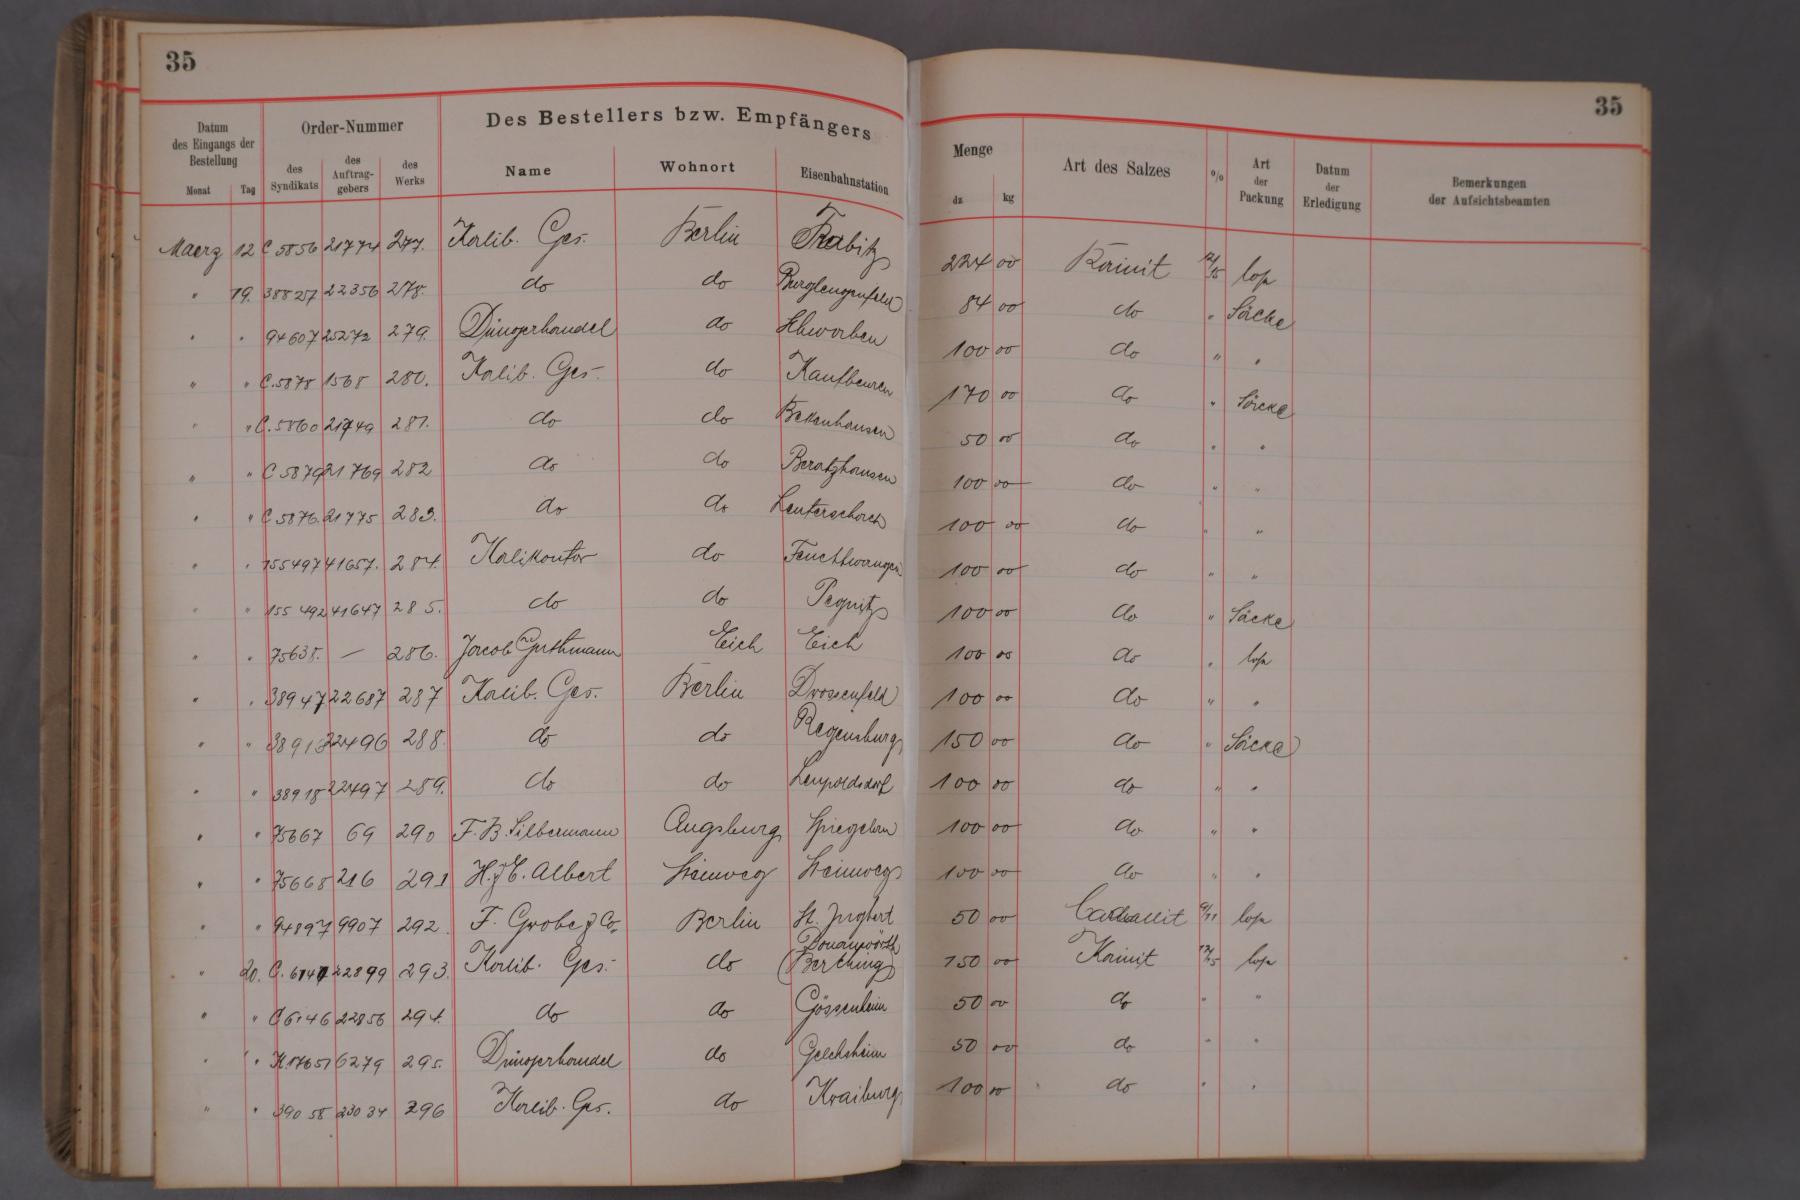 35
35
Datum des Eingangs der Bestellung
Order-Nummer
Des Bestellers bzw. Empfängers
Menge
Art des Salzes
%
Art der Packung
Datum der Erledigung
Bemerkungen der Aufsichtsbeamten
Monat Tag des Syndikats des Auftrag-gebers des Werks Name Wohnort Eisenbahnstation dz kg
Maerz 12 C 5856 21774 277. Kalib. Ges. Berlin Trabitz 224 00 Kainit 12/15 lose
" 19. 38827 22356 278. do do Burglengenfeld 84 00 do " Säcke
" " 94607 25272 279. Düngerhandel do 100 00 do " "
" " C.5878 1568 280. Kalib. Ges. do Kaufbeuren 170 00 do " Säcke
" " C.5860 21749 281. do do 50 00 do " "
" " C 5879 21769 282 do do Beratzhausen 100 00 do " "
" " C 5876. 21775 283. do do 100 00 do " "
" " 155497 41657. 284. Kalikontor do Feuchtwangen 100 00 do " "
" " 155492 41647 285. do do Pegnitz 100 00 do " Säcke
" " 75638. — 286. Jacob Guthmann Eich Eich 100 00 do " lose
" " 38947 22687 287 Kalib. Ges. Berlin Drossenfeld 100 00 do " "
" " 38913 22496 288. do do Regensburg 150 00 do " Säcke
" " 38918 22497 289. do do Leupoldsdorf 100 00 do " "
" " 75667 69 290 F. B. Silbermann Augsburg Spiegelau 100 00 do " "
" " 75668 216 291 H. & E. Albert 100 00 do " "
" " 94897 9907 292. F. Grobe & Co. Berlin St. Ingbert 50 00 Carnallit 9/11 lose
" 20. C. 6147 22899 293. Kalib. Ges. do Donauwörth (Berching) 150 00 Kainit 12/15 lose
" " C 6146 22856 294. do do Gössenheim 50 00 do " "
" " K.17651 6279 295. Düngerhandel do Gelchsheim 50 00 do " "
" " 39058 23034 296 Kalib. Ges. do Kraiburg 100 00 do " "